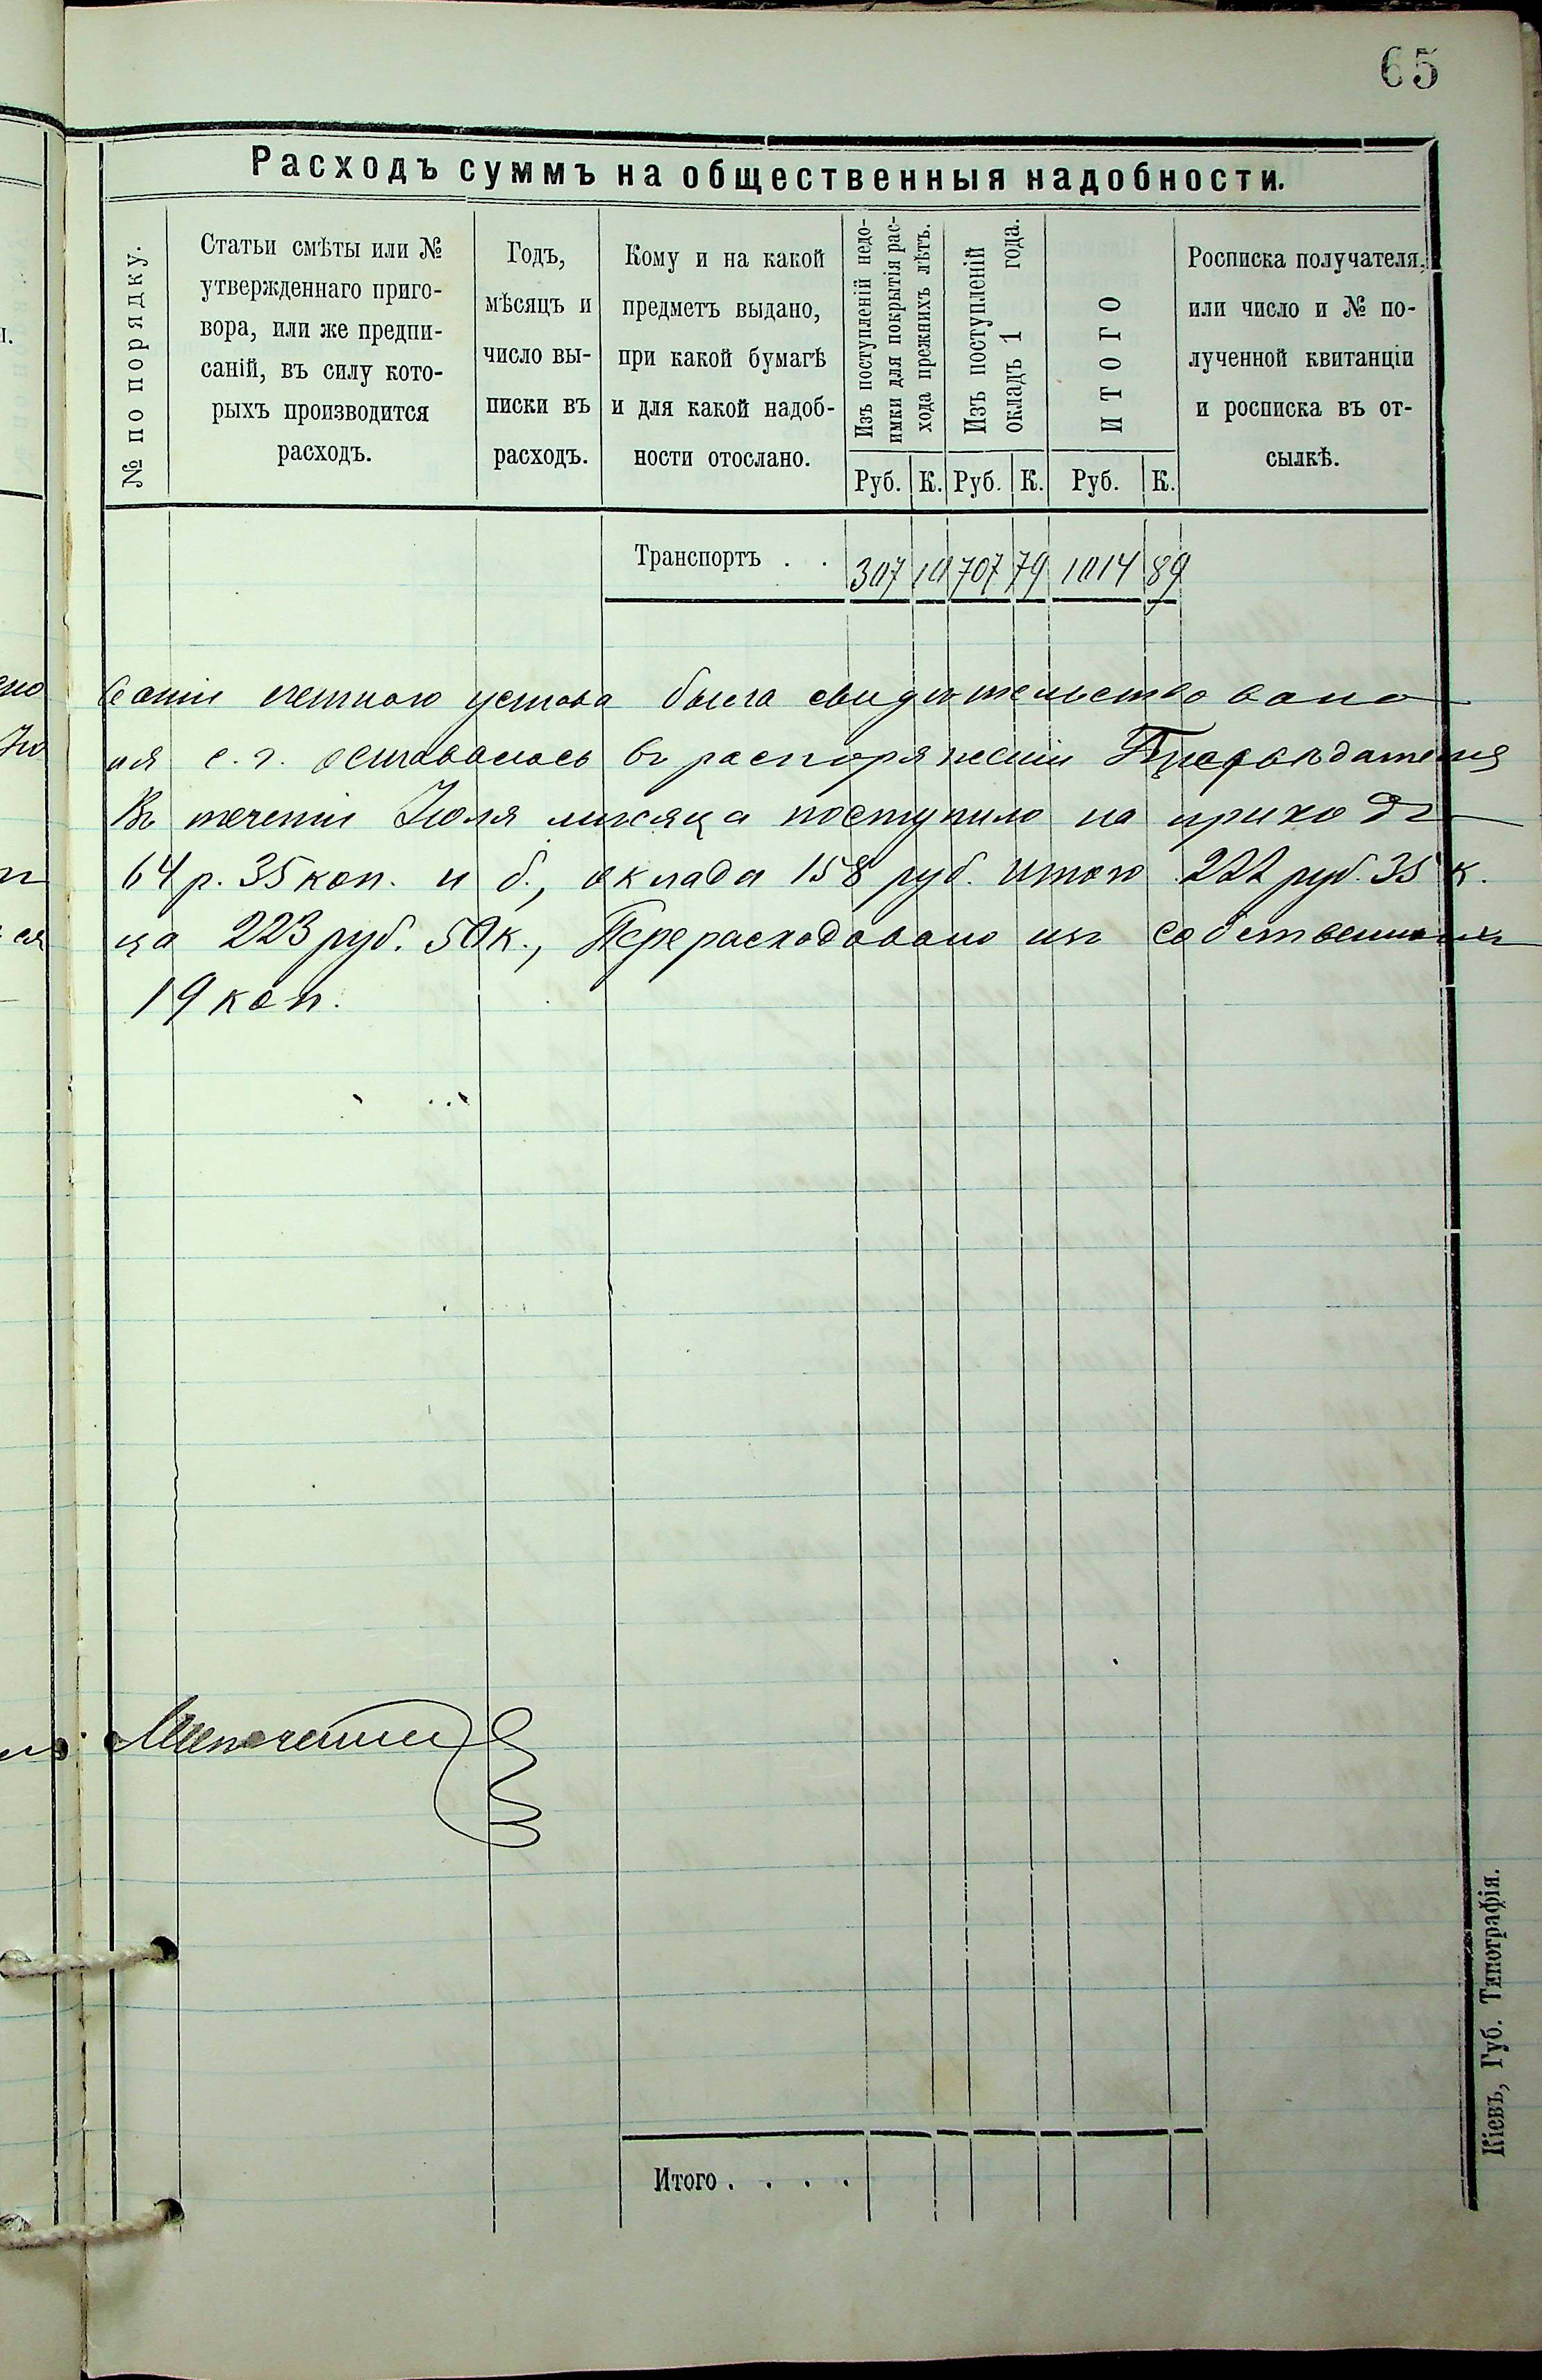 65
Расходъ суммъ на общественныя надобности.
№ по порядку.
Статьи смѣты или №
утвержденнаго приго-
вора, или же предпи-
саній, въ силу кото-
рыхъ производится
расходъ.
Годъ,
мѣсяцъ и
число вы-
писки въ
расходъ.
Кому и на какой
предметъ выдано,
при какой бумагѣ
и для какой надоб-
ности отослано.
Изъ поступленій недо-
имки для покрытія рас-
хода прежнихъ лѣтъ.
Изъ поступленій
окладъ 1 года.
ИТОГО
Росписка получателя,
или число и № по-
лученной квитанціи
и росписка въ от-
сылкѣ.
Руб. К. Руб. К. Руб. К.
Транспортъ . . 307 10 707 79 1014 89
ваніи счетнаго устава была свидѣтельствована
ля с. г. оставалось въ распоряженіи
Въ теченіи Іюля мѣсяца поступило на приходъ
64 р. 35 коп. и б., оклада 158 руб. итого 222 руб. 35 к.
ца 223 руб. 50 к., Перерасходовано изъ собственныхъ
19 коп.
Итого . . . .
Кіевъ, Губ. Типографія.